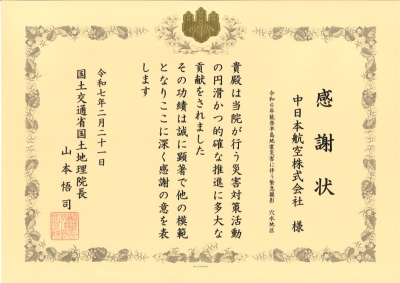 感謝状
中日本航空株式会社 様
令和6年能登半島地震災害に伴う緊急撮影 穴水地区
貴殿は当院が行う災害対策活動
の円滑かつ的確な推進に多大な
貢献をされました
その功績は誠に顕著で他の模範
となりここに深く感謝の意を表
します
令和七年二月二十一日
国土交通省国土地理院長
山本悟司